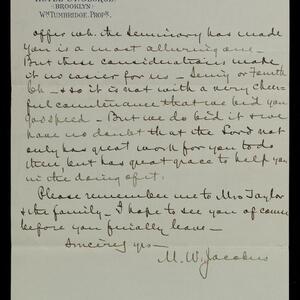 HOTEL ST. GEORGE.
(BROOKLYN)
WM TUMBRIDGE. PROPR.
offer wh. the Seminary has made
you is a most alluring one –
But these considerations make
it no easier for us – Seminy or Fourth
Ch – & so it is not with a very cheer-
ful countenance that we bid you
Godspeed – But we do bid it & we
have no doubt that the Lord not
only has great work for you to do
there, but has great grace to help you
in the doing of it.
Please remember me to Mrs Taylor
& the family – I hope to see you of course
before you finially leave –
Sincerely yrs –
M. W. Jacobus